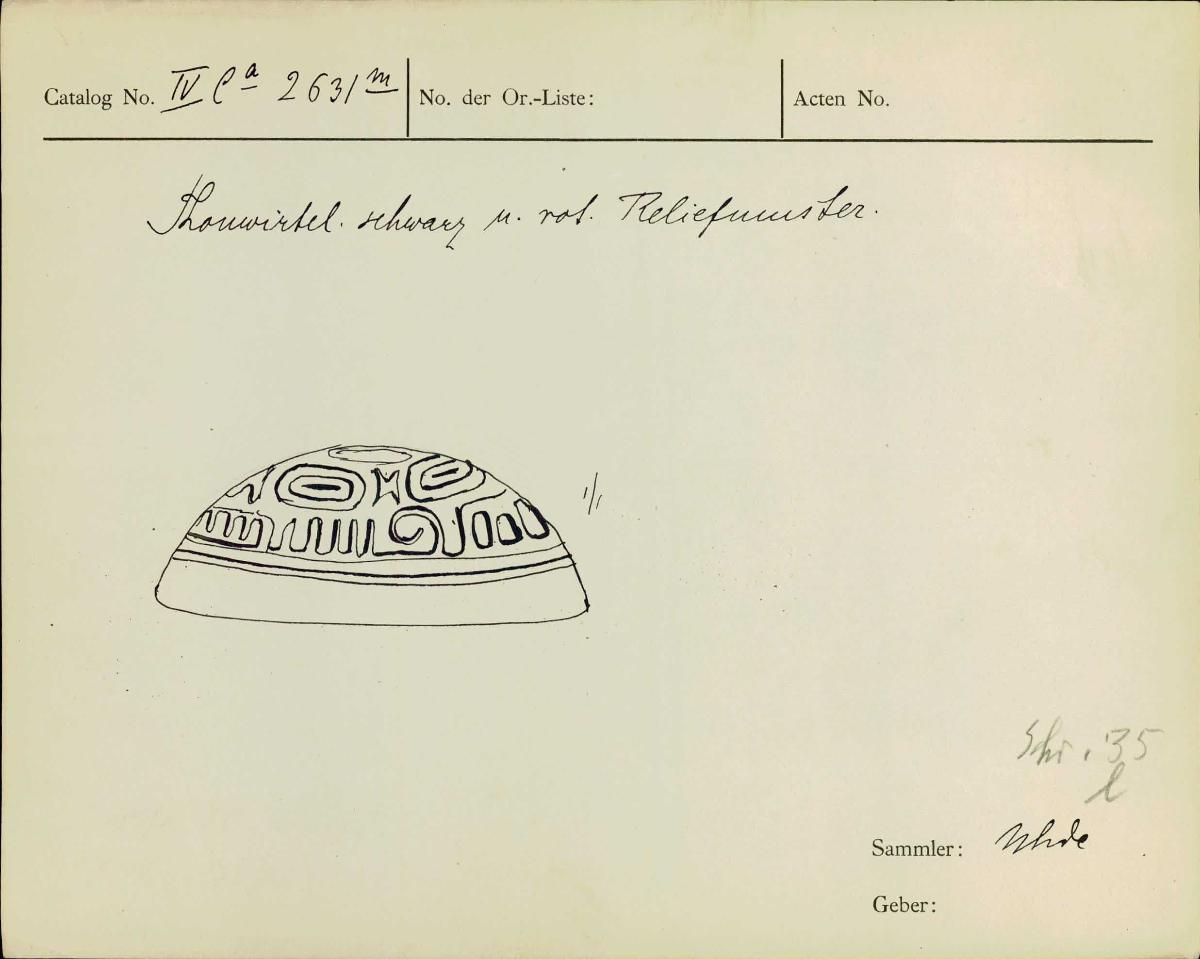 Catalog No. IV Ca 2631 m No. der Or.-Liste: Acten No.
Thonwirtel. schwarz u. rot. Reliefmuster.
1/1
Shr. 35
l
Sammler: Uhde
Geber: